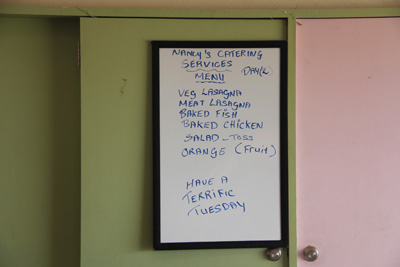 NANCY'S CATERING
SERVICES DAY(2)
MENU
VEG LASAGNA
MEAT LASAGNA
BAKED FISH
BAKED CHICKEN
SALAD - TOSS
ORANGE (FRUIT)
HAVE A
TERRIFIC
TUESDAY